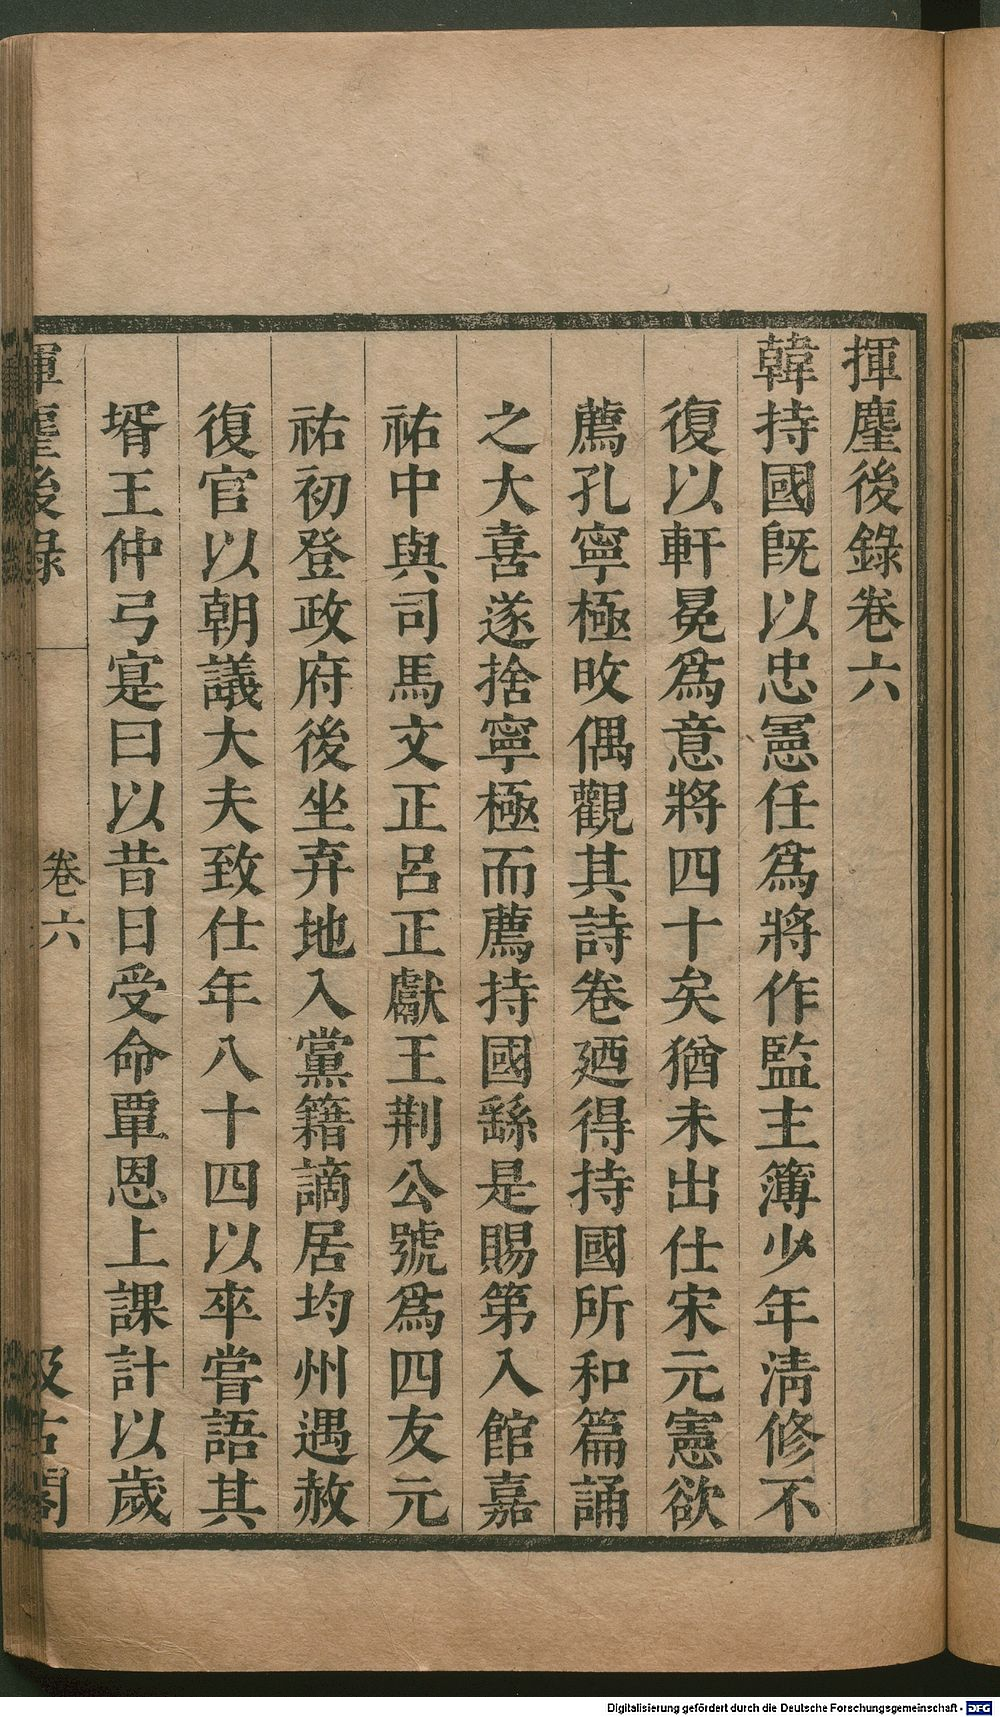 揮麈後錄卷六
韓持國旣以忠憲任爲將作監主簿少年淸修不
復以軒冕爲意將四十矣猶未出仕宋元憲欲
薦孔寧極旼偶觀其詩卷廼得持國所和篇誦
之大喜遂捨寧極而薦持國繇是賜第入館嘉
祐中與司馬文正呂正獻王荆公號爲四友元
祐初登政府後坐弃地入黨籍謫居均州遇赦
復官以朝議大夫致仕年八十四以卒嘗語其
壻王仲弓寔曰以昔日受命覃恩上課計以歲
揮麈後錄
卷六
汲古閣
Digitalisierung gefördert durch die Deutsche Forschungsgemeinschaft - DFG